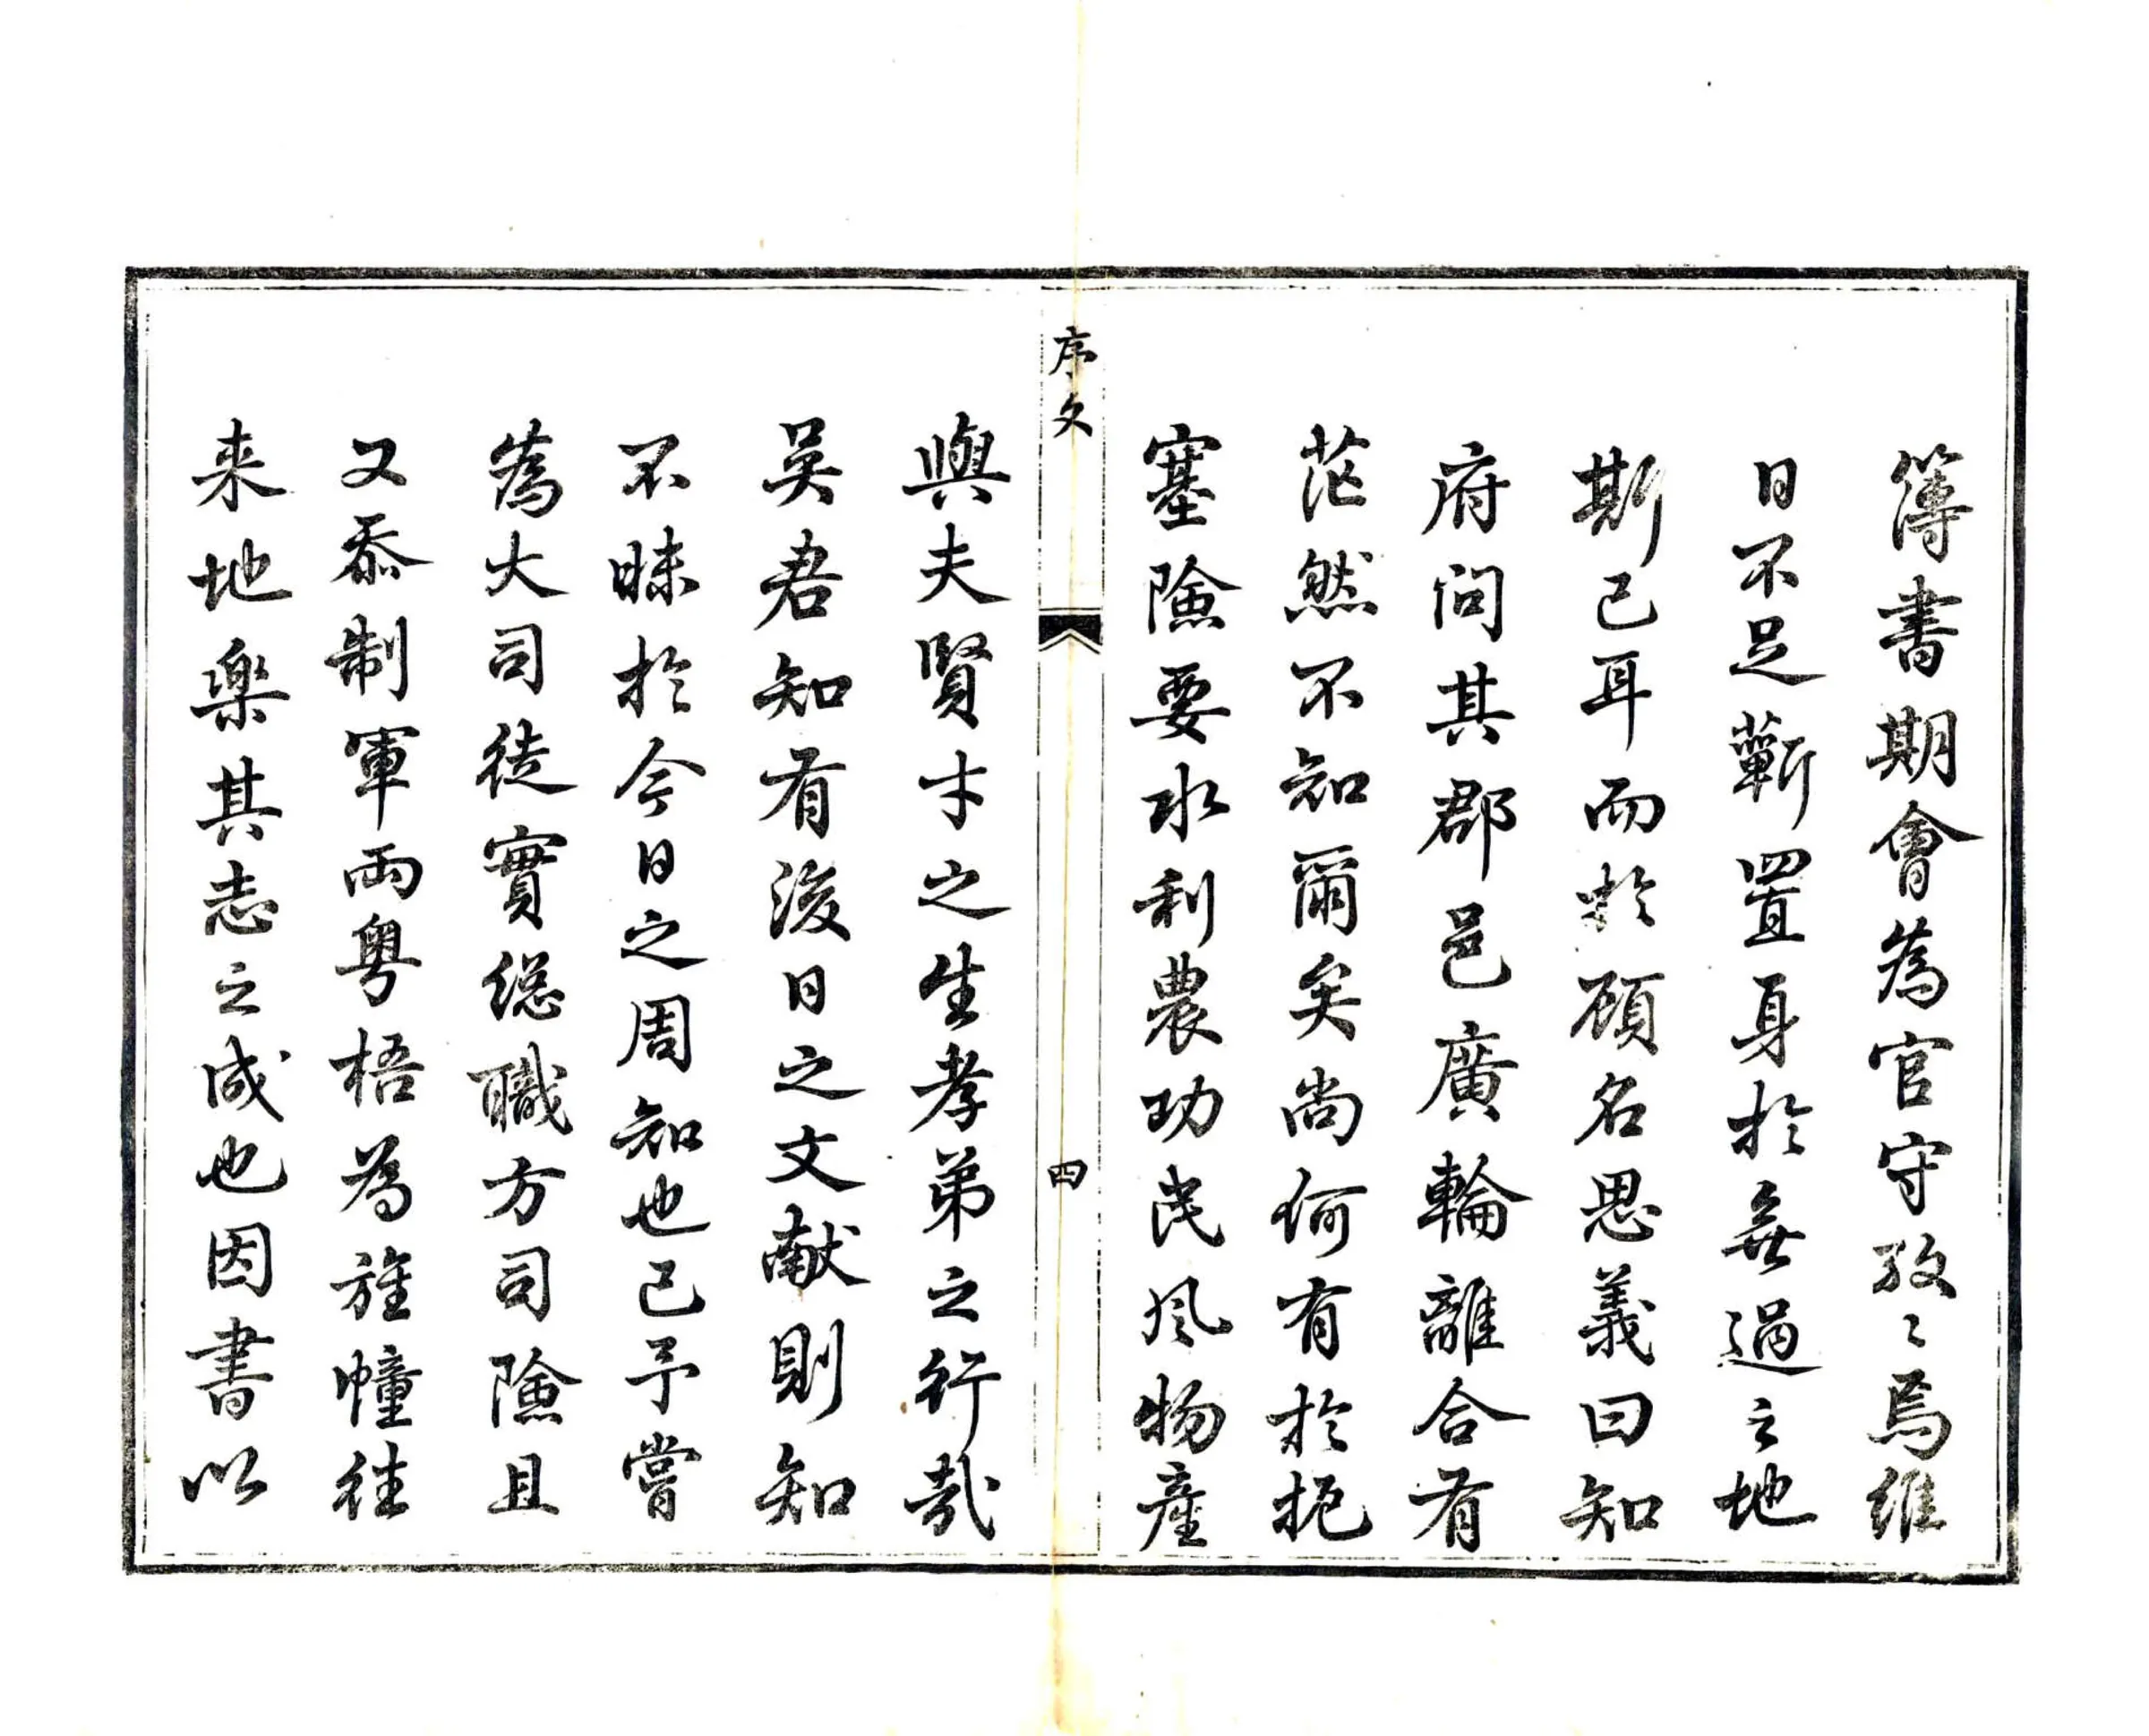 簿書期會為官守孜〻焉維
日不足蘄置身於無過之地
斯已耳而於顧名思義曰知
府问其郡邑廣輪離合有
茫然不知爾矣尚何有於扼
塞險要水利農功民風物產
序文
四
與夫賢才之生孝弟之行哉
吴君知有後日之文献則知
不昧於今日之周知也已予嘗
為大司徒實総職方司險且
又忝制軍兩粤梧為旌幢往
来地樂其志之成也因書以